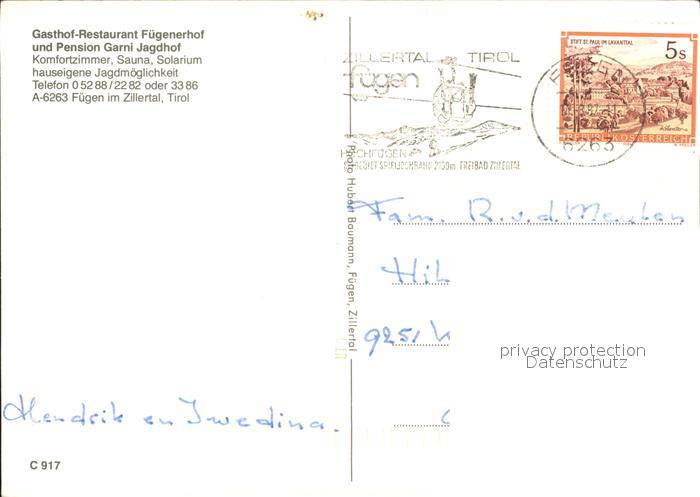 Gasthof-Restaurant Fügenerhof
und Pension Garni Jagdhof
Komfortzimmer, Sauna, Solarium
hauseigene Jagdmöglichkeit
Telefon 0 52 88 / 22 82 oder 33 86
A-6263 Fügen im Zillertal, Tirol
Hendrik en Iwedina.
C 917
Photo Hubert Baumann, Fügen, Zillertal
ZILLERTAL TIROL
fügen
HOCHFÜGEN
SPIELJOCHBAHN 2100m FREIBAD ZILLERTAL
6263
STIFT ST. PAUL IM LAVANTTAL
5 S
REPUBLIK ÖSTERREICH
Fam. R. v. d. Meulen
Hil
9251
privacy protection
Datenschutz